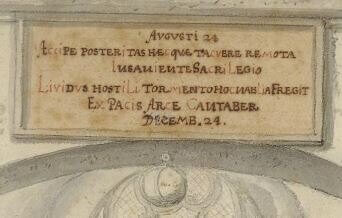 AVGVSTI 24
ACCIPE POSTERITAS HÆC QVE TACVERE REMOTA
INSAVIENTE SACRILEGIO
LIVIDVS HOSTILI TORMENTO HOC FREGIT
EX PACIS ARCE CANTABER
DECEMB. 24.